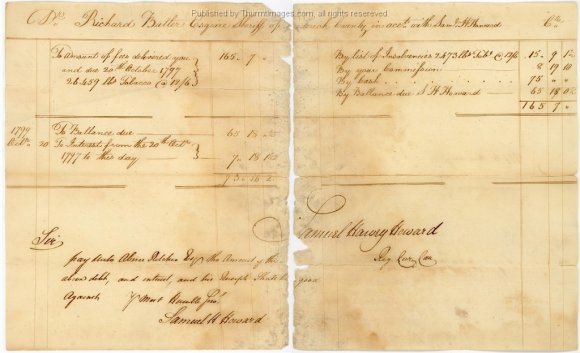 Published at ThurmImages.com, all rights reserved
Dr. Richard Butler Esquire Sheriff of County in acct. with Saml. H. Howard Cr.
To Amount of fees delivered you
and due 20th October 1797
26.459 lbs Tobacco @ 12/6
165. 7 "
By list of Insolvencies 2473 lbs Tobo. @ 12/6 15. 9 1½
By your Commission 8 19 10
By Cash 75 " "
By Ballance due S. H. Howard 65 18 0½
165 7 "
1799
Octo. 20 To Ballance due 65 18
To Interest from the 20th Octo.
1797 to this day
7. 18
73 16
Samuel Harvey Howard
Reg. Cur. Can.
Sir
pay unto Abner Ritchie Esqr. the Amount of the
above debt, and interest, and his Receipt shall be good
Against yr. Most Humble
Samuel H. Howard